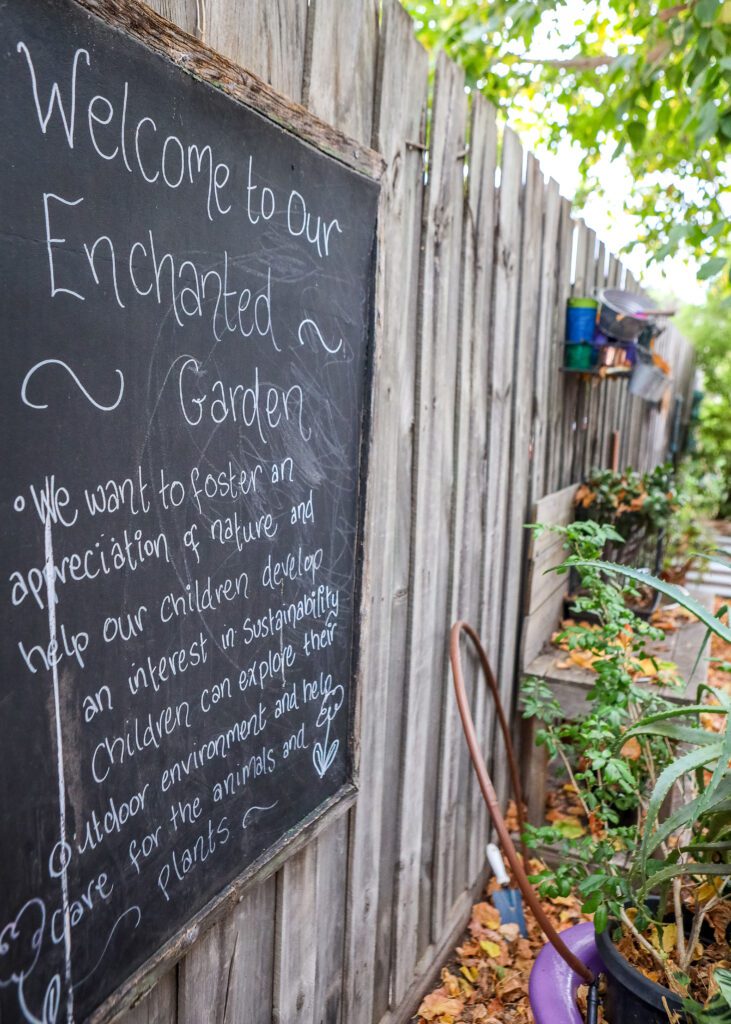 Welcome to Our
Enchanted
Garden
We want to foster an
appreciation of nature and
help our children develop
an interest in Sustainability
Children can explore their
Outdoor environment and help
Care for the animals and
plants